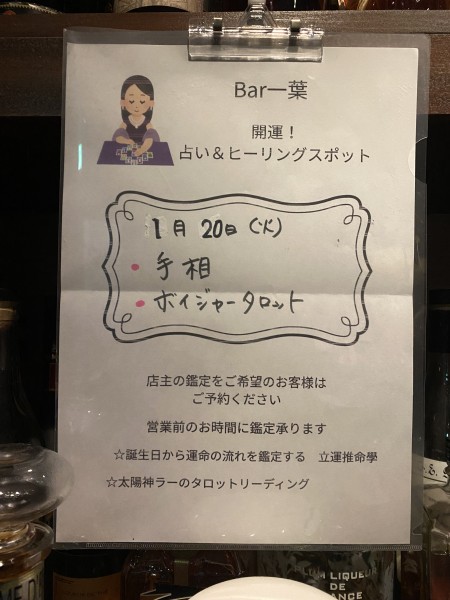 Bar一葉
開運！
占い＆ヒーリングスポット
1月 20日（火）
・手相
・ボイジャータロット
店主の鑑定をご希望のお客様は
ご予約ください
営業前のお時間に鑑定承ります
☆誕生日から運命の流れを鑑定する　立運推命學
☆太陽神ラーのタロットリーディング
LIQUEUR
DE